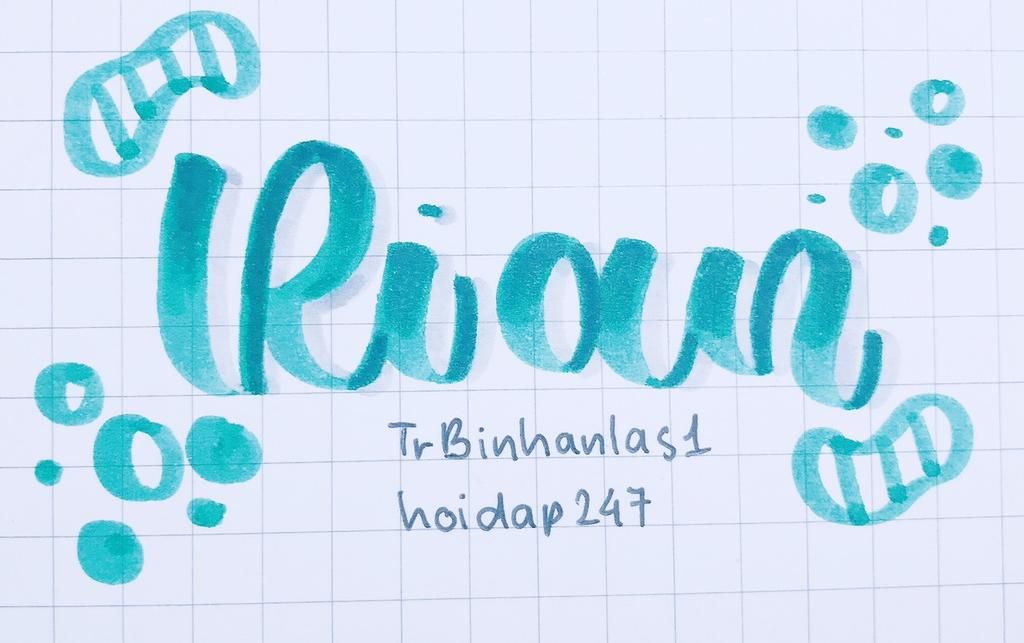 Rian
TrBinhanlas1
hoidap247